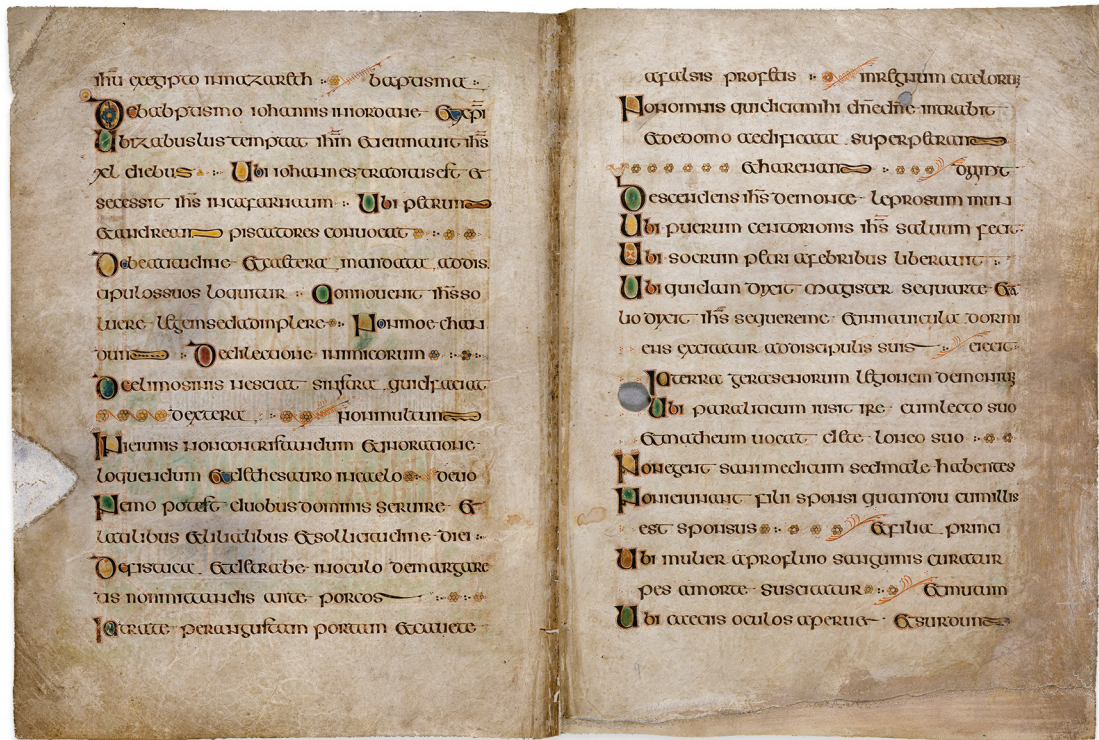 ihū exegipto innazareth baptisma
Debabtismo iohannis iniordane & xp̄i
Ubizabulustemptat ihm̄ & ieiunauit ihs̄
xl diebus Ubi iohannestraditusest &
secessit ihs̄ incafarnaum Ubi petrum
& andream piscatores conuocat
Debeatitudine & caetera mandata addis
cipulossuos loquitur Nonnouenit ihs̄ so
luere legemsedadimplere Nonmoechan
dum Dedilectione inimicorum
Deelimosinis nesciat sinistra quidfaciat
dextera nonmultum
Inieiunis noncontristandum & inoratione
loquendum & dethesauro incaelo deuo
Nemo potest duobusdominis seruire &
latilibus & liliatilibus & sollicitudine diei
Defistuca & detrabe inoculo demargare
tis nonmittandis ante porcos
Intrate perangustam portam & cauete
afalsis profetis inregnum caeloru
Nonomnis quidicitmihi dn̄edn̄e intrabit
& dedomo aedificata superpetram
& harenam dixit
Descendens ihs̄ demonte leprosum mun
Ubi puerum centorionis ihs̄ saluum fecit
Ubi socrum petri afebribus liberauit
Ubi quidam dixit magister sequarte & a
lio dixit ihs̄ sequereme & innauicula dormi
ens excitatur addiscipulis suis eiecit
Interra gerasenorum legionem demoniu
Ubi paraliticum iusit ire cumlecto suo
& matheum uocat dete loneo suo
Nonegent sanimedicum sedmale habentes
Nonieiunant filii sponsi quamdiu cumillis
est sponsus & filia princi
Ubi mulier aprofluuio sanguinis curatur
pes amorte suscitatur & mutum
Ubi caecis oculos aperuit & surdum